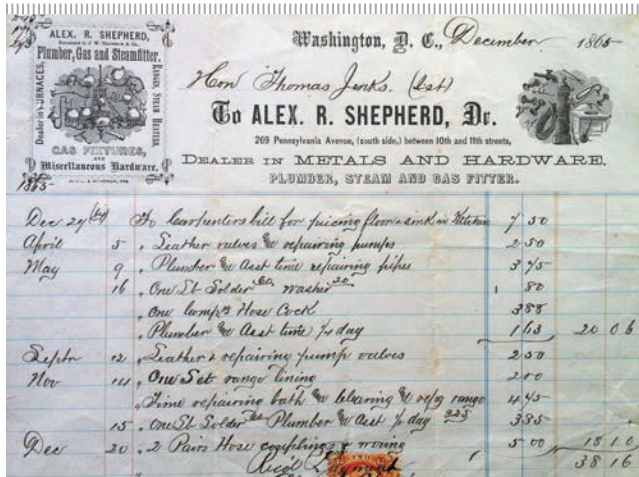 ALEX. R. SHEPHERD,
Plumber, Gas and Steamfitter.
Dealer in FURNACES,
RANGES, STEAM HEATERS
GAS FIXTURES,
AND
Miscellaneous Hardware.
1865
Washington, D. C., December 1865
Hon Thomas Jenks. (Est)
To ALEX. R. SHEPHERD, Dr.
269 Pennsylvania Avenue, (south side,) between 10th and 11th streets,
DEALER IN METALS AND HARDWARE,
PLUMBER, STEAM AND GAS FITTER.
Dec 29 (64) To Carpenters bill for piecing floor & sink in Kitchen 7 50
April 5 " Leather valves & repairing pumps 2 50
May 9 " Plumber & Asst time repairing pipes 3 75
16 " One Lb Solder 60 washer 20 80
" One Hose Cock 3 88
" Plumber & Asst time 1/4 day 1 63 20 06
Septr 12 " Leather & repairing pump valves 2 50
Nov 14 " One Set range lining 2 00
" Time repairing bath & cleaning & repg range 4 45
15 " One Lb Solder 60 Plumber & Asst 1/2 day 3 25 3 85
Dec 20 " 2 Pairs Hose couplings & wiring 5 00 18 10
Recd Payment 38 16